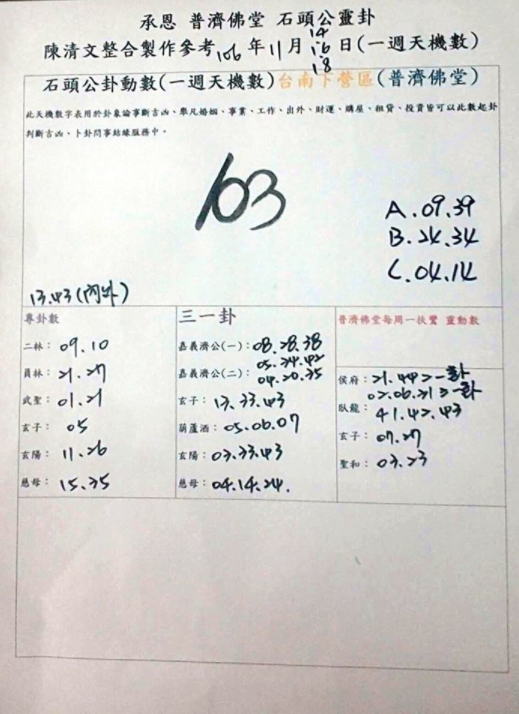 承恩 普濟佛堂 石頭公靈卦
陳清文整合製作參考106年11月14.16.18日(一週天機數)
石頭公卦動數(一週天機數)台南下營區(普濟佛堂)
此天機數字表用於卦象論事斷吉凶、舉凡婚姻、事業、工作、出外、財運、購屋、租貸、投資皆可以此數起卦
判斷吉凶、卜卦問事結緣服務中。
103
A.09.39
B.24.34
C.04.14
13.43(內外)
專卦數
二林：09.10
員林：21.27
武聖：01.21
玄子：05
玄陽：11.26
慈母：15.35
三一卦
嘉義濟公(一)：08.28.38
嘉義濟公(二)：05.24.42
04.20.35
玄子：13.33.43
葫蘆酒：05.06.07
玄陽：03.33.43
慈母：04.14.24.
普濟佛堂每周一扶鸞 靈動數
侯府：21.44>一卦
02.06.21>一卦
臥龍：41.42.43
玄子：07.27
聖和：03.23